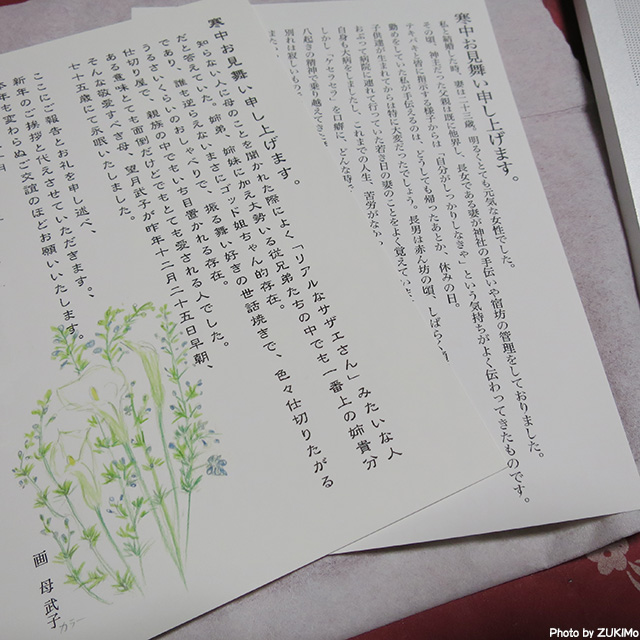 寒中お見舞い申し上げます。
私と結婚した時、妻は二十三歳。明るくとても元気な女性でした。
その頃、神主だった父親は既に他界し、長女である妻が神社の手伝いや宿坊の管理をしておりました。
テキパキと皆に指示する様子からは、「自分がしっかりしなきゃ」という気持ちがよく伝わってきたものです。
勤めをしていた私が手伝えるのは、どうしても帰ったあとか、休みの日。
子供達が生まれてからは特に大変だったでしょう。長男は赤ん坊の頃、しばらく
おぶって病院に連れて行っていた若き日の妻のことをよく覚えていま
自身も大病をしましたし、これまでの人生、苦労がな
しかし「ケセラセラ」を口癖に、どんな
八起きの精神で乗り越えてき
別れは寂しいもの
また、
寒中お見舞い申し上げます。
知らない人に母のことを聞かれた際によく「リアルなサザエさん」みたいな人
だと答えていた。姉弟、姉妹に加え大勢いる従兄弟たちの中でも一番上の姉貴分
であり、誰も逆らえないまさにゴッド姐ちゃん的存在。
うるさいくらいのおしゃべりで、振る舞い好きの世話焼きで、色々仕切りたがる
仕切り屋で、親族の中でもいち目置かれる存在。
ある意味とても面倒だけどでもとても愛される人でした。
そんな敬愛すべき母、望月武子が昨年十二月二十五日早朝、
七十五歳にて永眠いたしました。
ここにご報告とお礼を申し述べ、
新年のご挨拶と代えさせていただきます。、
本年も変わらぬご交誼のほどお願いいたします。
画 母 武子
カラー
Photo by ZUKIMo